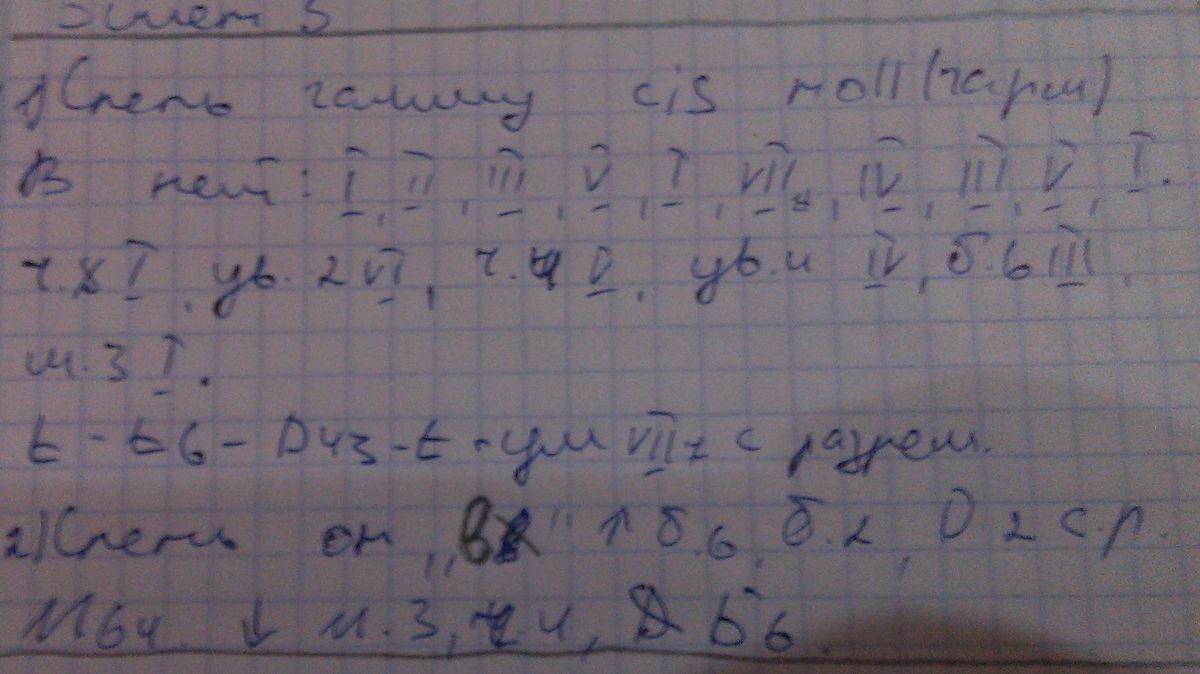 Билет 5
1) Спеть гамму cis moll (гарм)
В ней: I, II, III, V, I, VII, IV, III, V, I.
ч.8 I, ув.2 VI, ч.4 V, ув.4 IV, б.6 III,
м.3 I.
t - t6 - D43 - t - ум VII7 с разрем.
2) Спеть от „В" ↑ б.6, б.2, D2 с.р.
М64. ↓ м.3, ч.4, Б6.